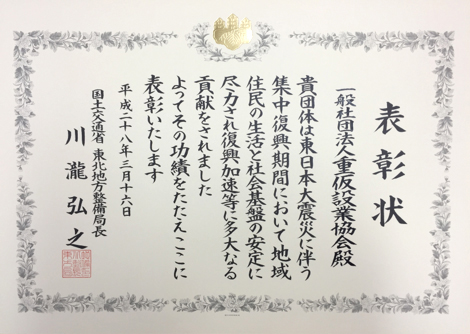 表彰状
一般社団法人重仮設業協会殿
貴団体は東日本大震災に伴う
集中復興期間において地域
住民の生活と社会基盤の安定に
尽力され復興加速等に多大なる
貢献をされました
よってその功績をたたえここに
表彰いたします
平成二十八年三月十六日
国土交通省 東北地方整備局長
川瀧弘之